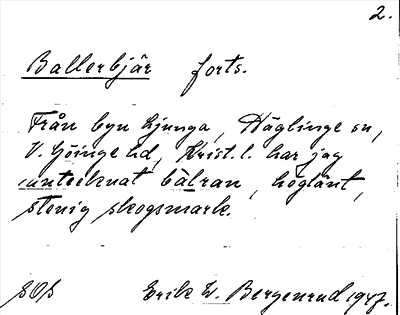 2.
Ballerbjär forts.
Från byn Ljunga, Häglinge sn,
V. Göinge hd, Krist. l. har jag
antecknat bälran, höglänt,
stenig skogsmark.
SOS Erik W. Bergenrud 1947.